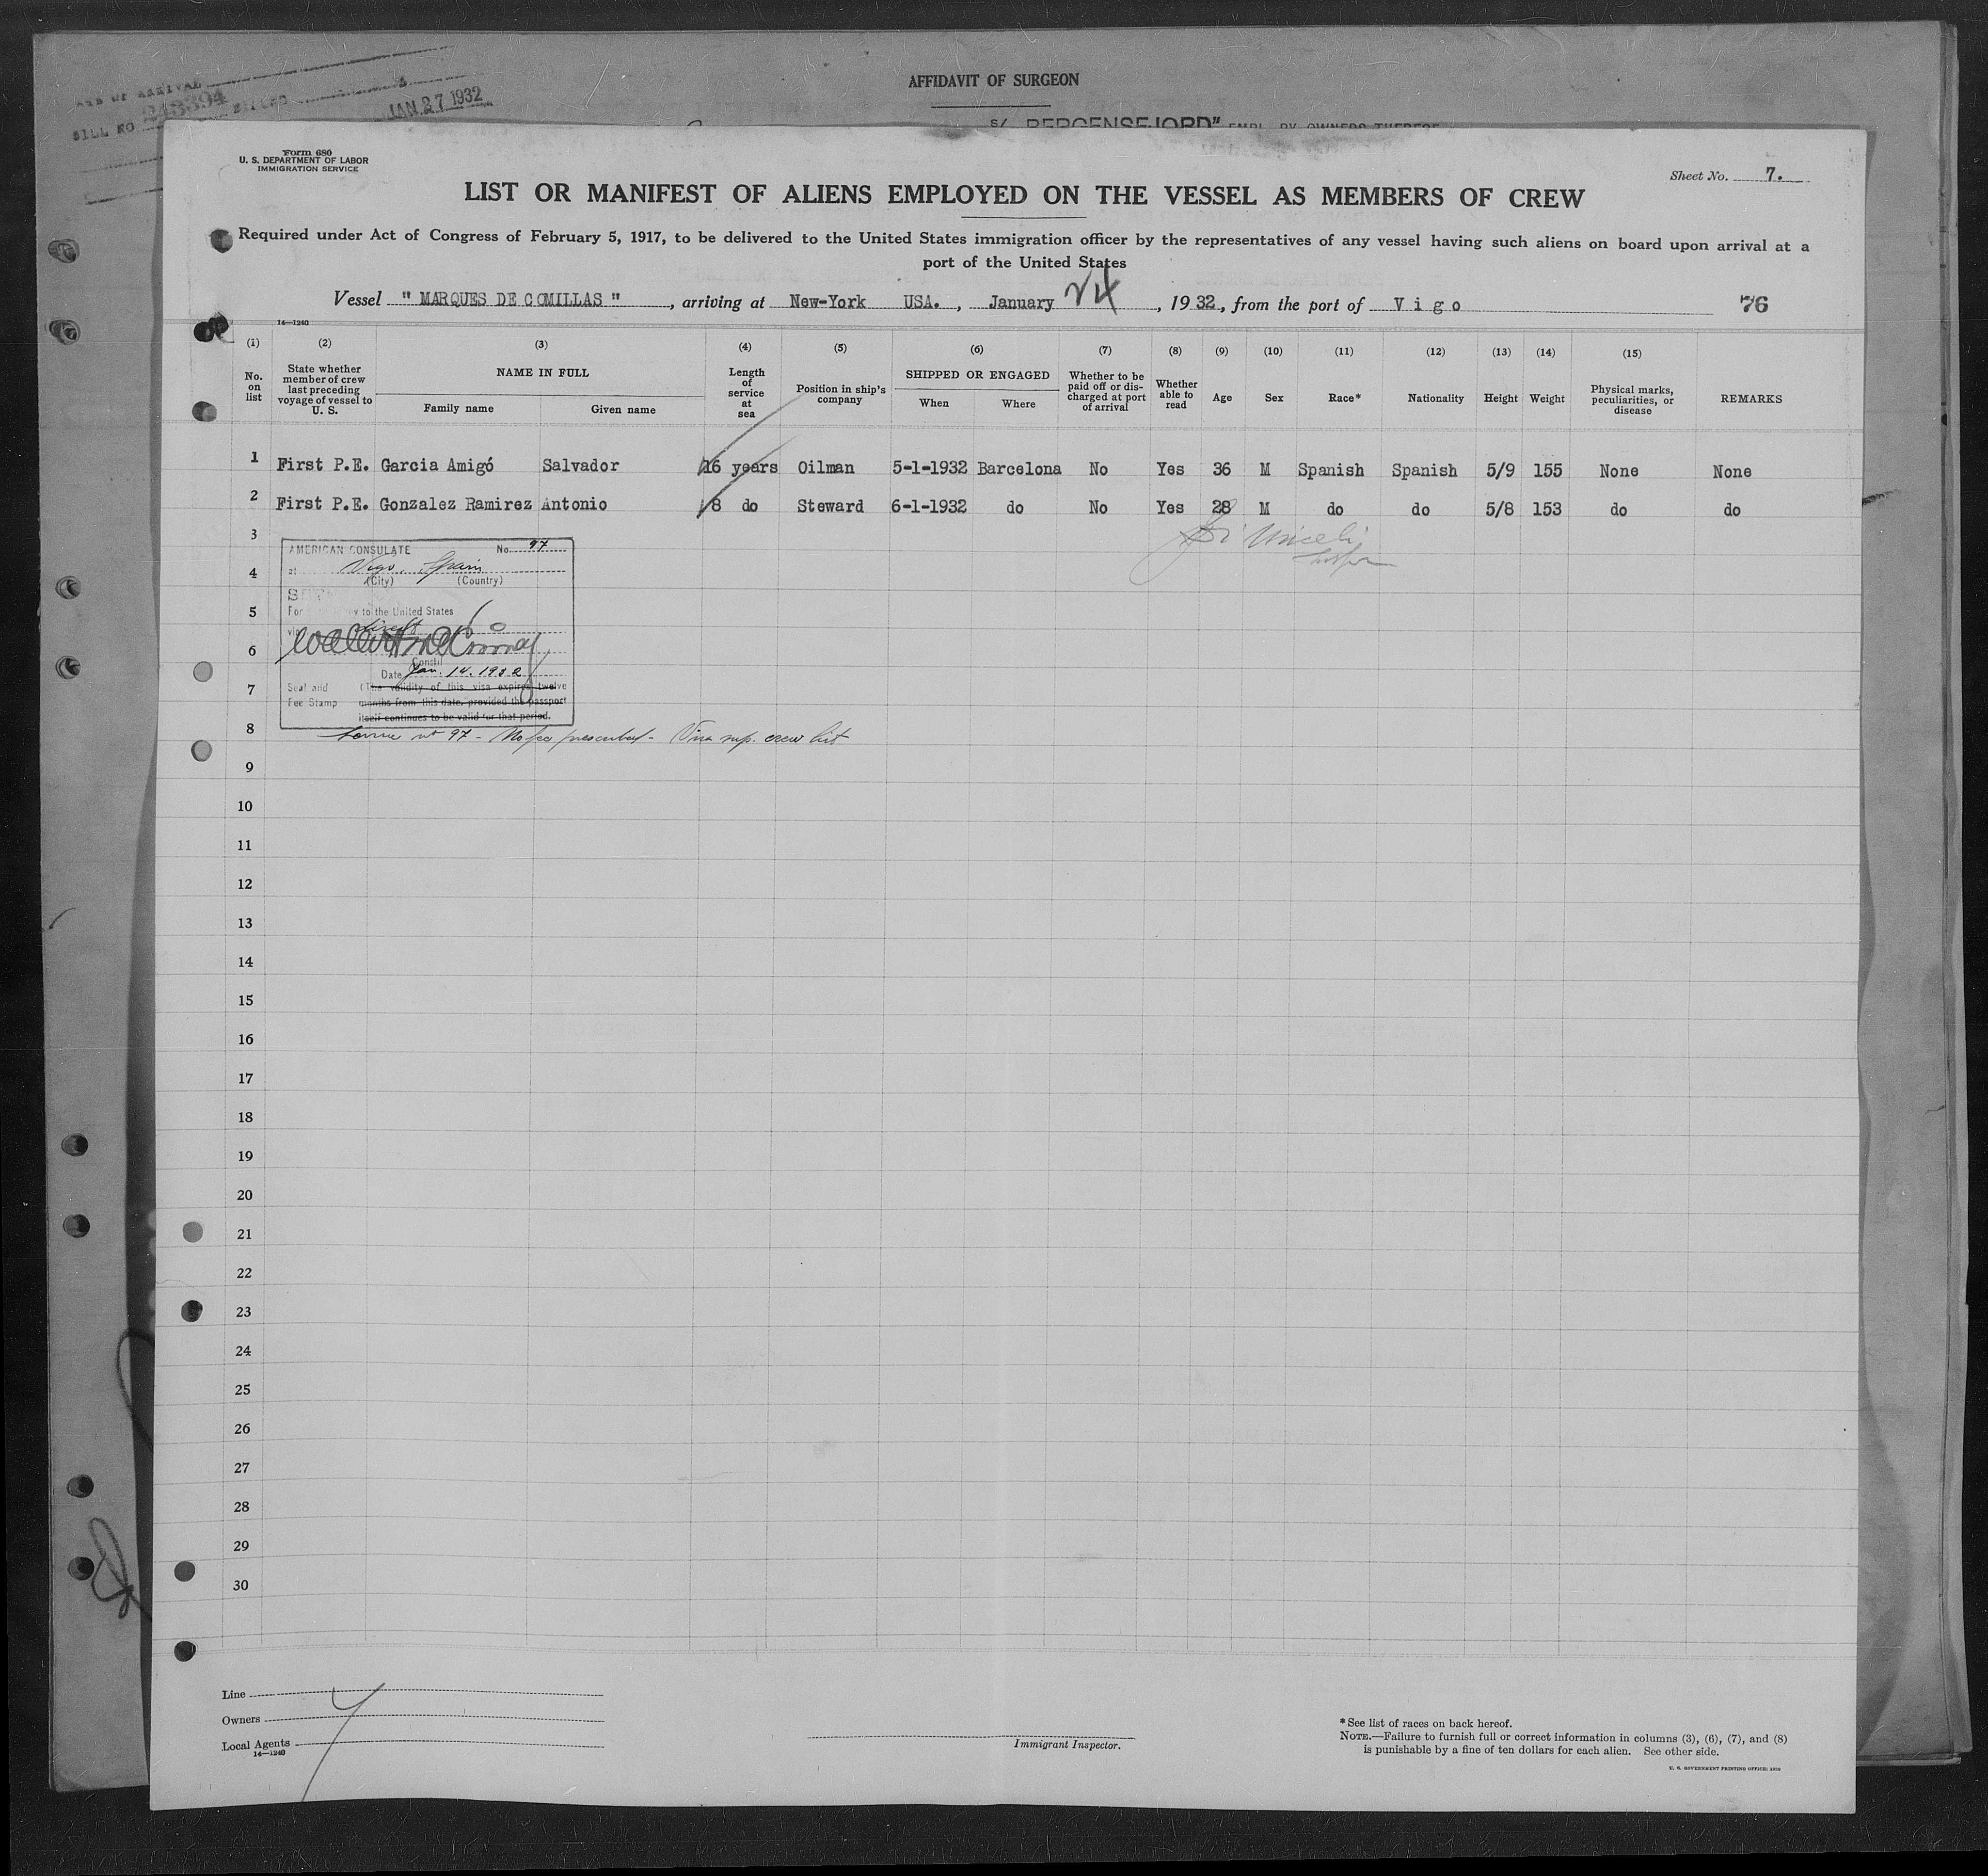 AFFIDAVIT OF SURGEON
BILL NO 243394
JAN 27 1932
Form 680
U. S. DEPARTMENT OF LABOR
IMMIGRATION SERVICE
Sheet No. 7.
LIST OR MANIFEST OF ALIENS EMPLOYED ON THE VESSEL AS MEMBERS OF CREW
Required under Act of Congress of February 5, 1917, to be delivered to the United States immigration officer by the representatives of any vessel having such aliens on board upon arrival at a
port of the United States
Vessel " MARQUES DE COMILLAS ", arriving at New-York USA., January 24, 1932, from the port of Vigo 76
14—1240
(1) (2) (3) (4) (5) (6) (7) (8) (9) (10) (11) (12) (13) (14) (15)
No. on list
State whether member of crew last preceding voyage of vessel to U. S.
NAME IN FULL
Family name
Given name
Length of service at sea
Position in ship's company
SHIPPED OR ENGAGED
When
Where
Whether to be paid off or discharged at port of arrival
Whether able to read
Age
Sex
Race*
Nationality
Height
Weight
Physical marks, peculiarities, or disease
REMARKS
1 First P.E. Garcia Amigó Salvador 16 years Oilman 5-1-1932 Barcelona No Yes 36 M Spanish Spanish 5/9 155 None None
2 First P.E. Gonzalez Ramirez Antonio 8 do Steward 6-1-1932 do No Yes 28 M do do 5/8 153 do do
3
AMERICAN CONSULATE No. 97
4
at Vigo, Spain
(City) (Country)
5
For to the United States
via direct
6
Consul
Date Jan. 14. 1932
7
Seal and (The validity of this visa expires twelve
Fee Stamp months from this date, provided the passport
itself continues to be valid for that period.
8
No fee prescribed - Visa sup. crew list
9
10
11
12
13
14
15
16
17
18
19
20
21
22
23
24
25
26
27
28
29
30
Line
Owners
Local Agents
14—1240
Immigrant Inspector.
* See list of races on back hereof.
NOTE.—Failure to furnish full or correct information in columns (3), (6), (7), and (8)
is punishable by a fine of ten dollars for each alien. See other side.